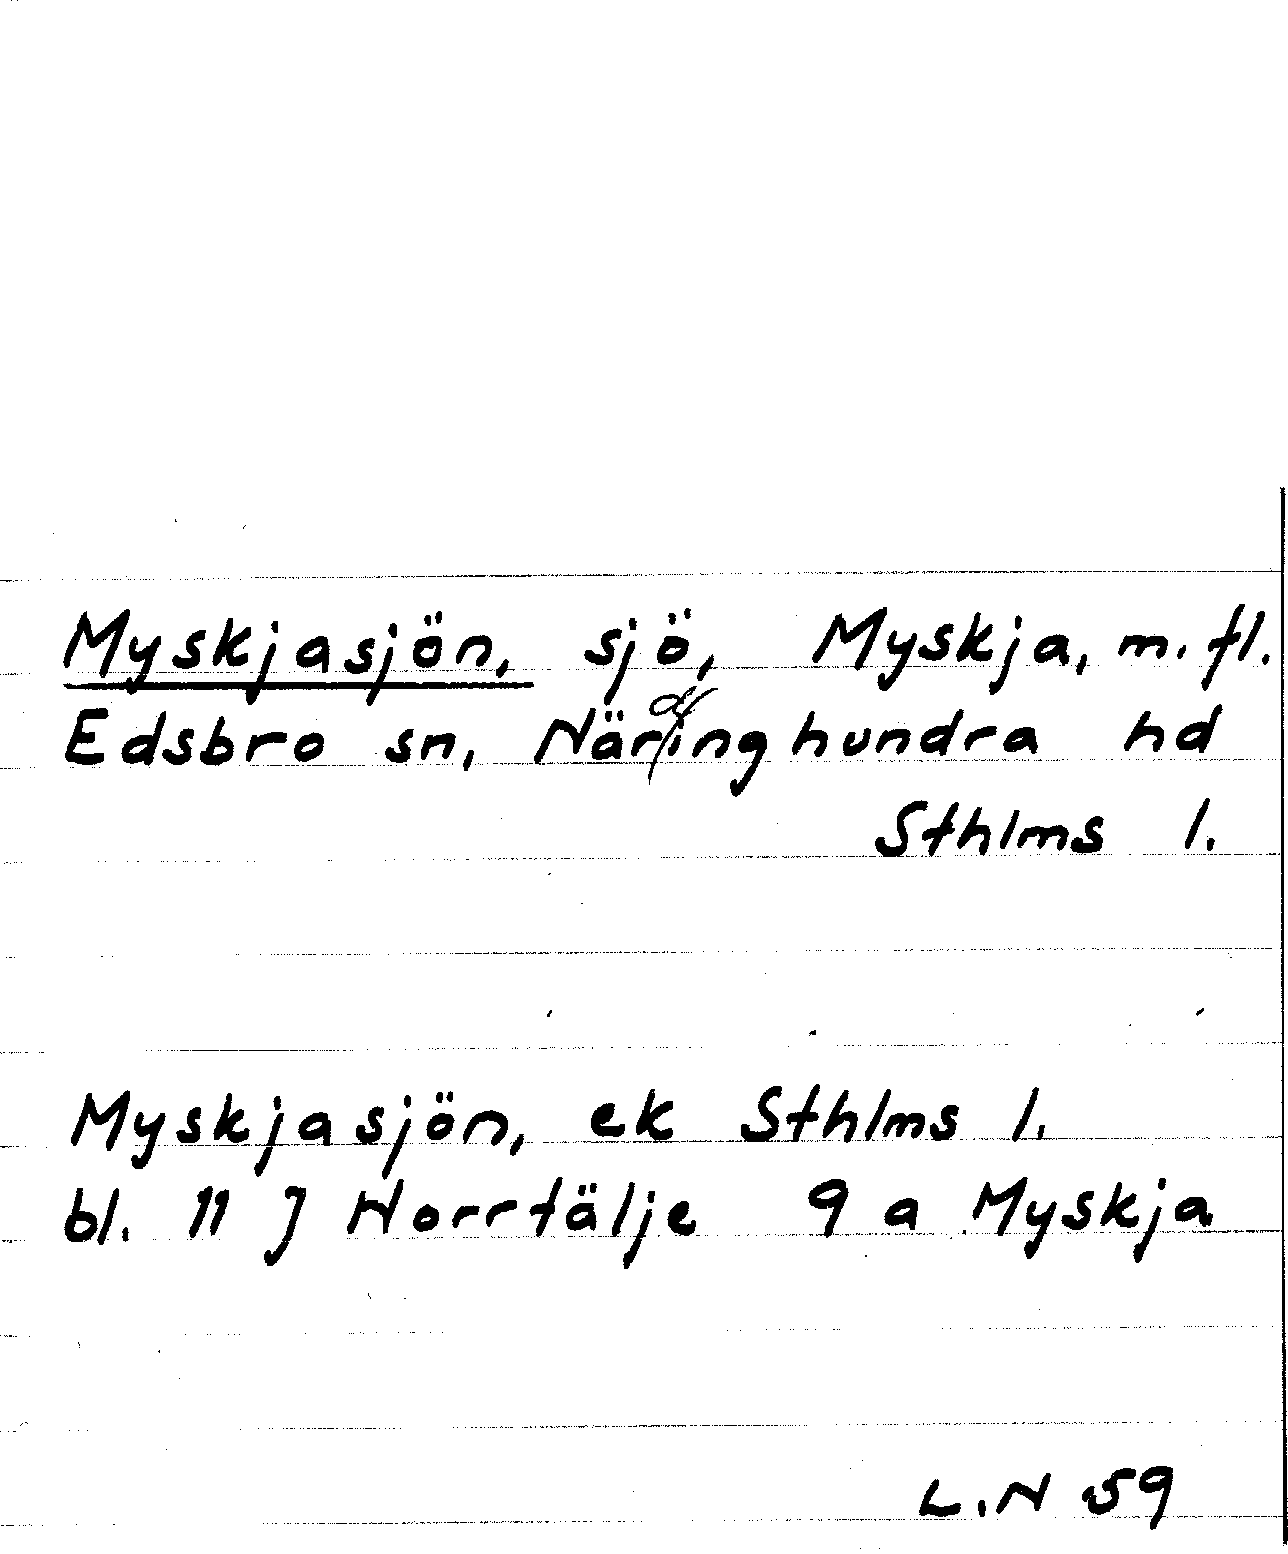 Myskjasjön, sjö, Myskja, m.fl.
Edsbro sn, Närdinghundra hd
Sthlms l.
Myskjasjön, ek Sthlms l.
bl. 11 J Norrtälje 9 a Myskja
L.N 59